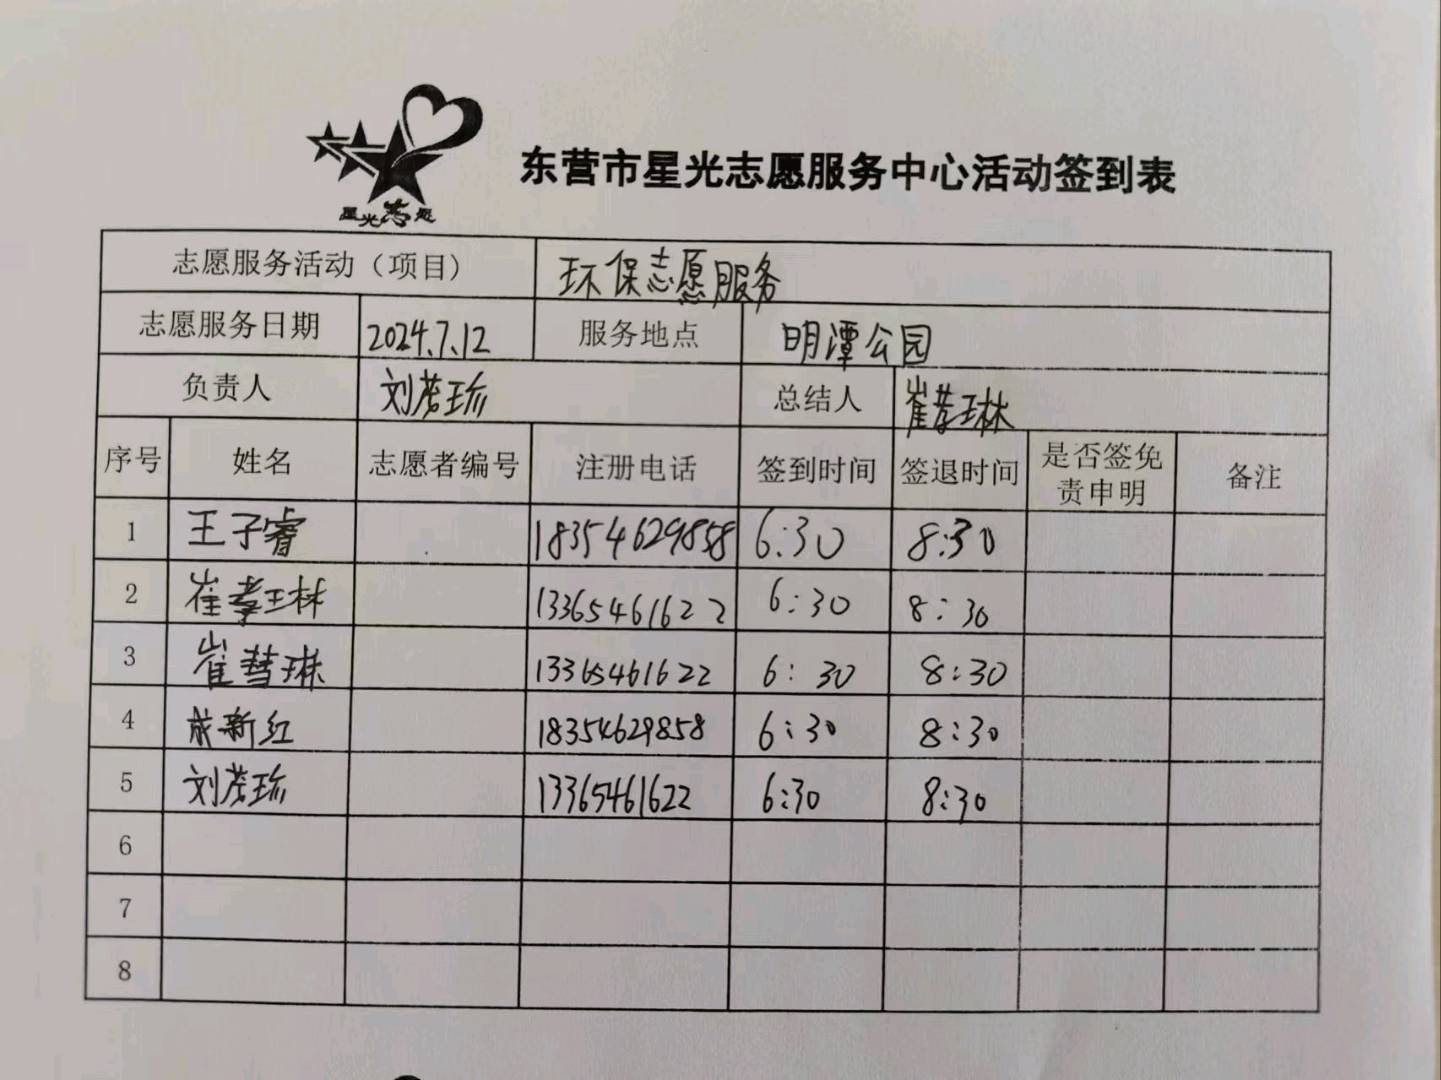 星光志愿
东营市星光志愿服务中心活动签到表
志愿服务活动（项目） 环保志愿服务
志愿服务日期 2024.7.12 服务地点 明潭公园
负责人 刘茂珍 总结人 崔孝琳
序号 姓名 志愿者编号 注册电话 签到时间 签退时间 是否签免责申明 备注
1 王子睿 18354629858 6:30 8:30
2 崔孝琳 13365461622 6:30 8:30
3 崔彗琳 13365461622 6:30 8:30
4 成新红 18354629858 6:30 8:30
5 刘茂珍 13365461622 6:30 8:30
6
7
8